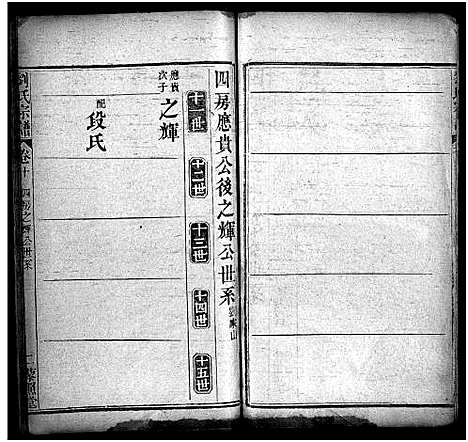 四房應貴公後之輝公世系
十一世
十二世
十三世
十四世
十五世
應貴
次子
之輝
配
段氏
劉氏宗譜
卷十 四房之輝公世系